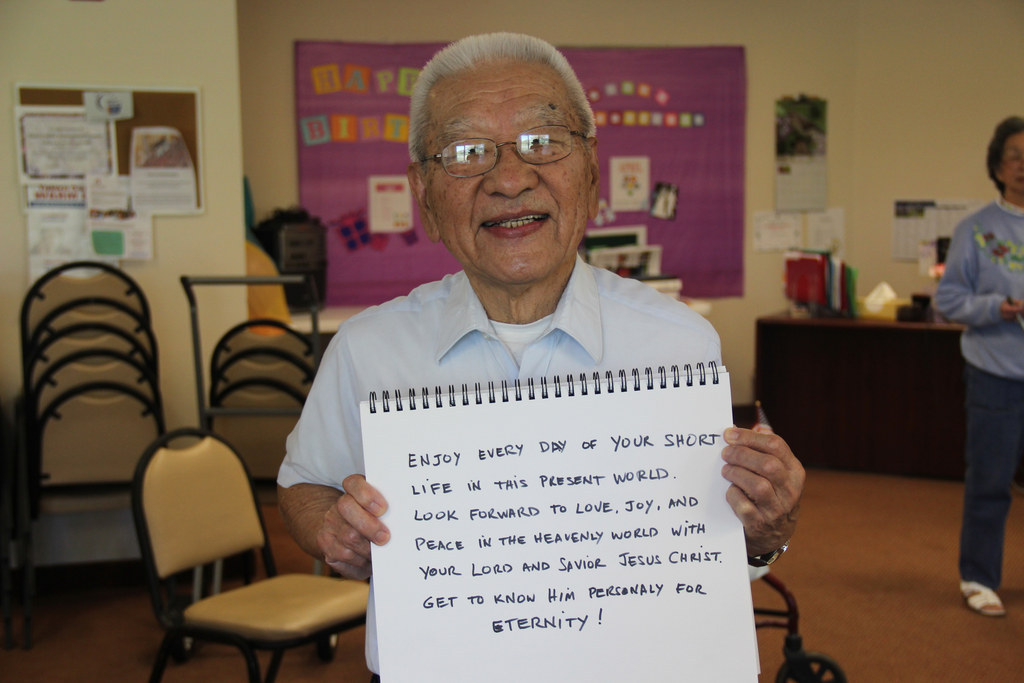 HAPP
BIRT
ENJOY EVERY DAY OF YOUR SHORT
LIFE IN THIS PRESENT WORLD.
LOOK FORWARD TO LOVE, JOY, AND
PEACE IN THE HEAVENLY WORLD WITH
YOUR LORD AND SAVIOR JESUS CHRIST.
GET TO KNOW HIM PERSONALY FOR
ETERNITY!